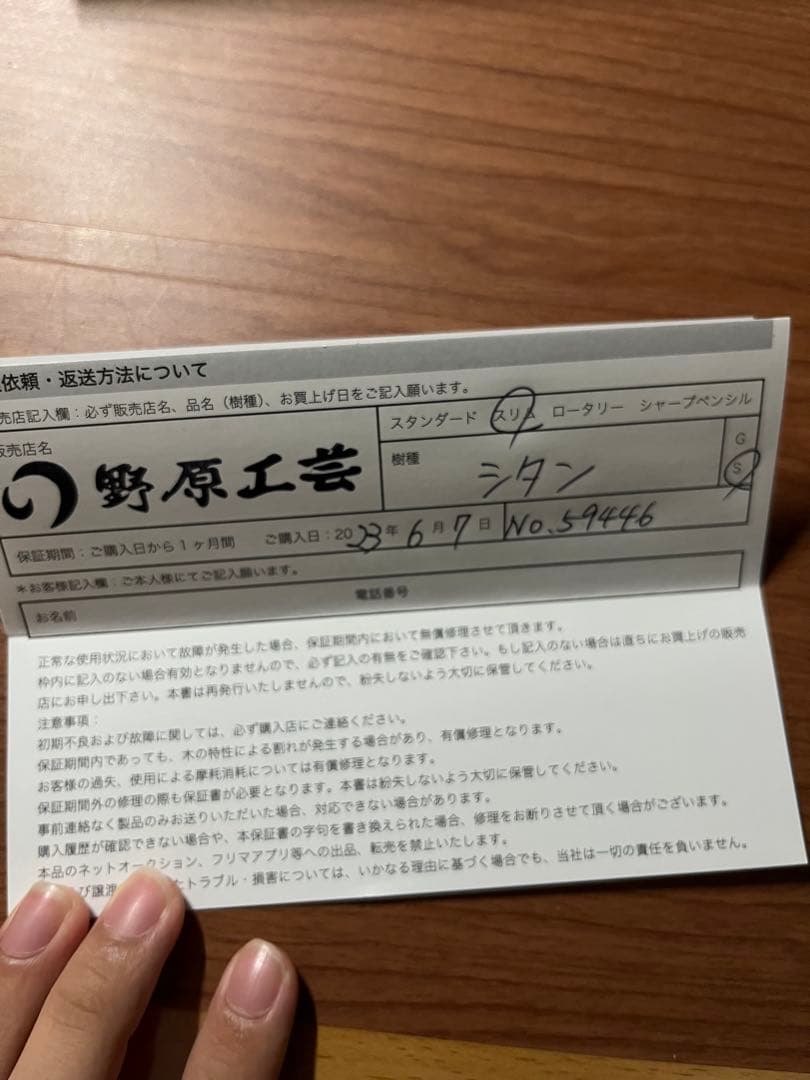 依頼・返送方法について
売店記入欄：必ず販売店名、品名（樹種）、お買上げ日をご記入願います。
販売店名
野原工芸
スタンダード スリム ロータリー シャープペンシル
樹種
シタン
G
S
保証期間：ご購入日から1ヶ月間 ご購入日：2023年6月7日 No.59446
＊お客様記入欄：ご本人様にてご記入願います。
お名前 電話番号
正常な使用状況において故障が発生した場合、保証期間内において無償修理させて頂きます。
枠内に記入のない場合有効となりませんので、必ず記入の有無をご確認下さい。もし記入のない場合は直ちにお買上げの販売
店にお申し出下さい。本書は再発行いたしませんので、紛失しないよう大切に保管してください。
注意事項：
初期不良および故障に関しては、必ず購入店にご連絡ください。
保証期間内であっても、木の特性による割れが発生する場合があり、有償修理となります。
お客様の過失、使用による摩耗消耗については有償修理となります。
保証期間外の修理の際も保証書が必要となります。本書は紛失しないよう大切に保管してください。
事前連絡なく製品のみお送りいただいた場合、対応できない場合があります。
購入履歴が確認できない場合や、本保証書の字句を書き換えられた場合、修理をお断りさせて頂く場合がございます。
本品のネットオークション、フリマアプリ等への出品、転売を禁止いたします。
び譲渡 たトラブル・損害については、いかなる理由に基づく場合でも、当社は一切の責任を負いません。